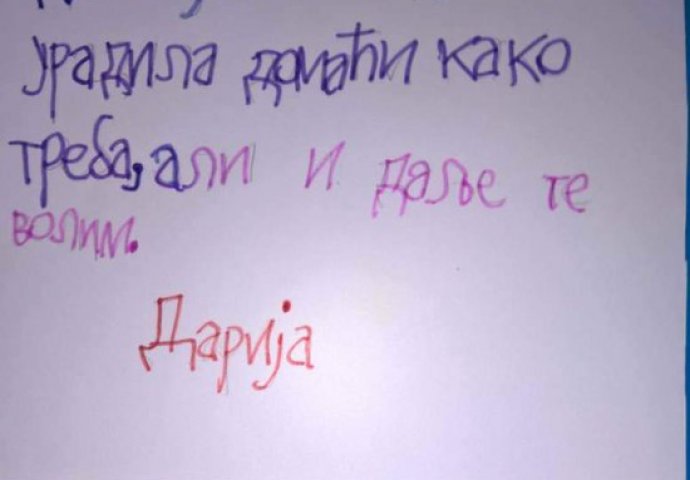 урадила домаћи како
треба, али и даље те
волим.
Дарија